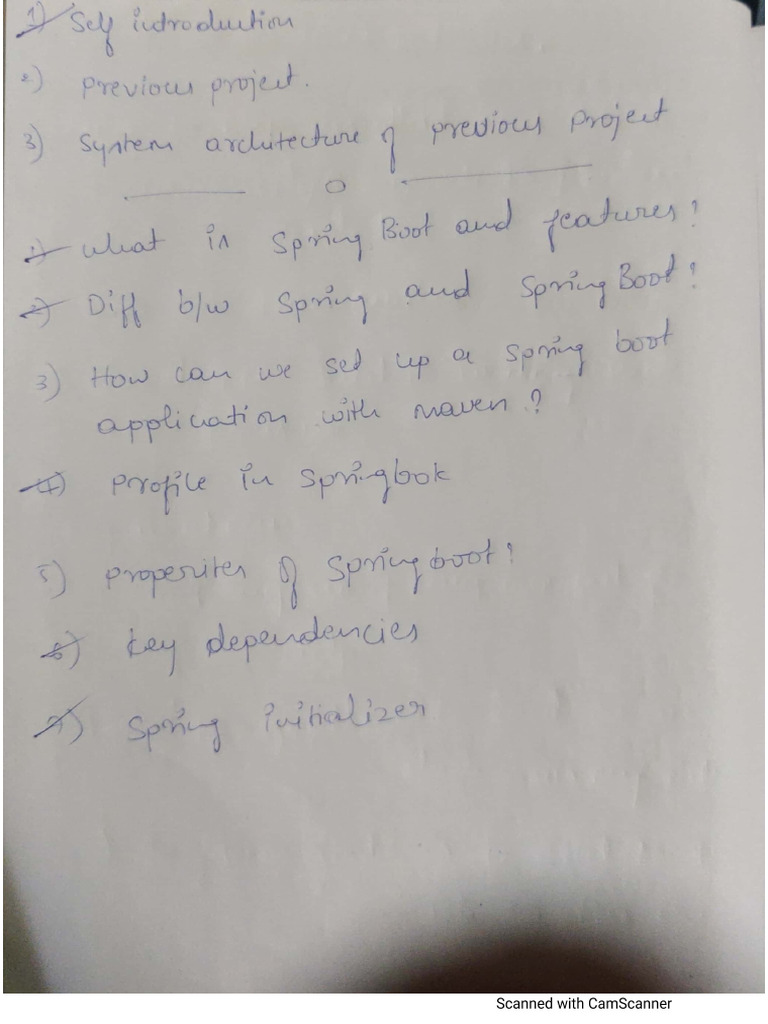 1) Self introduction
2) previous project.
3) System architecture of previous project
1) What is Spring Boot and features?
2) Diff b/w Spring and Spring Boot?
3) How can we set up a spring boot
application with maven?
4) Profile in Springbok
5) properites of Springboot?
6) key dependencies
7) Spring initializer
Scanned with CamScanner